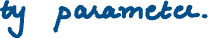 by parameter.